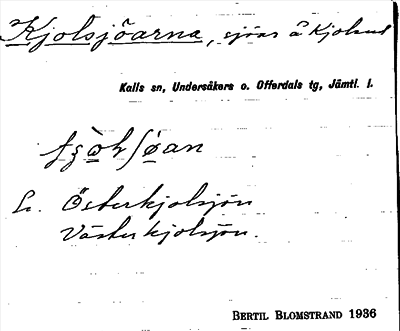 Kjolsjöarna, sjöar å Kjolens
Kalls sn, Undersåkers o. Offerdals tg, Jämtl. l.
Österkjolsjön
Västerkjolsjön.
BERTIL BLOMSTRAND 1936